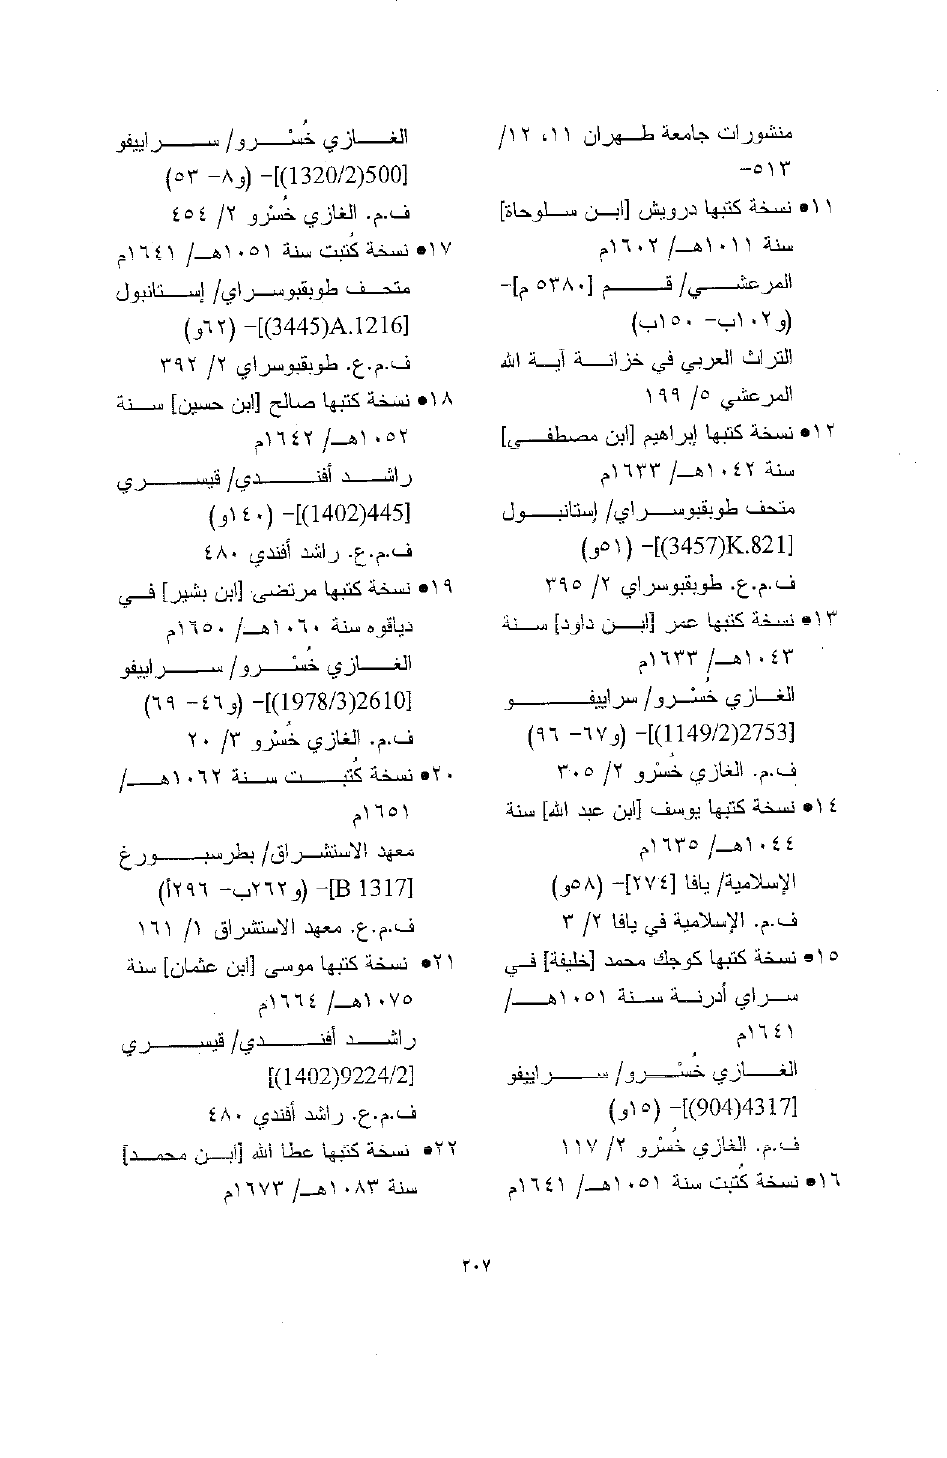 منشورات جامعة طهران ١١، ١٢/
٥١٣-
١١• نسخة كتبها درويش [ابن سلوحاة]
سنة ١٠١١هـ/ ١٦٠٢م
المرعشي/ قم [٥٣٨٠ م]-
(و١٠٢ب- ١٥٠ب)
التراث العربي في خزانة آية الله
المرعشي ٥/ ١٩٩
١٢• نسخة كتبها إبراهيم [ابن مصطفى]
سنة ١٠٤٢هـ/ ١٦٣٣م
متحف طوبقبوسراي/ إستانبول
[K.821(3457)]- (٥١و)
ف.م.ع. طوبقبوسراي ٢/ ٣٩٥
١٣• نسخة كتبها عمر [ابن داود] سنة
١٠٤٣هـ/ ١٦٣٣م
الغازي خُسْرو/ سراييفو
[2753(1149/2)]- (و٦٧- ٩٦)
ف.م. الغازي خُسْرو ٢/ ٣٠٥
١٤• نسخة كتبها يوسف [ابن عبد الله] سنة
١٠٤٤هـ/ ١٦٣٥م
الإسلامية/ يافا [٢٧٤]- (٥٨و)
ف.م. الإسلامية في يافا ٢/ ٣
١٥• نسخة كتبها كوجك محمد [خليفة] في
سراي أدرنة سنة ١٠٥١هـ/
١٦٤١م
الغازي خُسْرو/ سراييفو
[4317(904)]- (١٥و)
ف.م. الغازي خُسْرو ٢/ ١١٧
١٦• نسخة كُتبت سنة ١٠٥١هـ/ ١٦٤١م
الغازي خُسْرو/ سراييفو
[500(1320/2)]- (و٨- ٥٣)
ف.م. الغازي خُسْرو ٢/ ٤٥٤
١٧• نسخة كُتبت سنة ١٠٥١هـ/ ١٦٤١م
متحف طوبقبوسراي/ إستانبول
[A.1216(3445)]- (٦٢و)
ف.م.ع. طوبقبوسراي ٢/ ٣٩٢
١٨• نسخة كتبها صالح [ابن حسين] سنة
١٠٥٢هـ/ ١٦٤٢م
راشد أفندي/ قيسري
[445(1402)]- (١٤٠و)
ف.م.ع. راشد أفندي ٤٨٠
١٩• نسخة كتبها مرتضى [ابن بشير] في
دياقوه سنة ١٠٦٠هـ/ ١٦٥٠م
الغازي خُسْرو/ سراييفو
[2610(1978/3)]- (و٤٦- ٦٩)
ف.م. الغازي خُسْرو ٣/ ٢٠
٢٠• نسخة كُتبت سنة ١٠٦٢هـ/
١٦٥١م
معهد الاستشراق/ بطرسبورغ
[B 1317]- (و٢٦٢ب- ٢٩٦أ)
ف.م.ع. معهد الاستشراق ١/ ١٦١
٢١• نسخة كتبها موسى [ابن عثمان] سنة
١٠٧٥هـ/ ١٦٦٤م
راشد أفندي/ قيسري
[9224/2(1402)]
ف.م.ع. راشد أفندي ٤٨٠
٢٢• نسخة كتبها عطا الله [ابن محمد]
سنة ١٠٨٣هـ/ ١٦٧٣م
٢٠٧